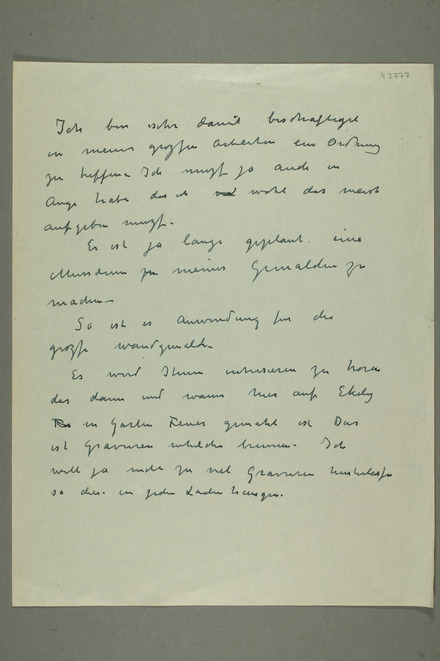 N 2777
Ich bin sehr damit beschäftigt
in meiner groszen Arbeiten ein Ordnung
zu treffen Ich muszt ja auch in
Auge habe das ich wohl das meist
aufgeben muszt.
Es ist ja lange geplant. eine
Musseum zu meines Gemälden zu
machen –
So ist es Anwendung für die
grosze wandgemälde
Es wird Ihnen intresieren zu horen
das dann und wann hier auf Ekely
in Garten Feuer gemacht ist Das
ist Gravuren whilche brennen – Ich
will ja nicht zu viel Gravuren hinterlasse
so das in jeden Laden hängen.